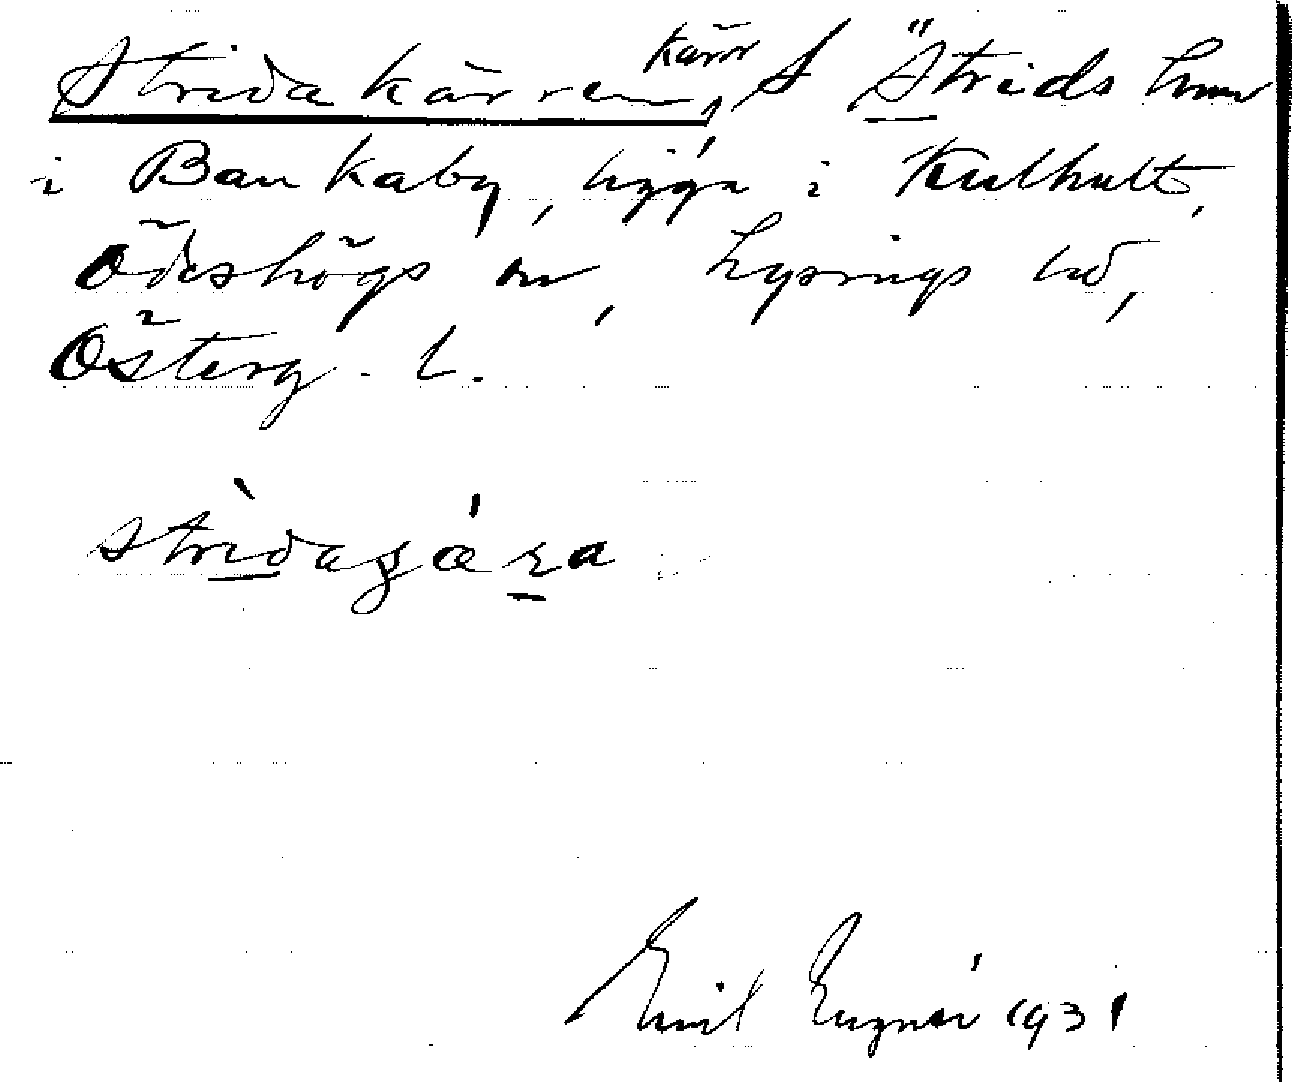 Stridakärren, kärr S "Strids hm
i Bankaby, ligga i Kulhult,
Ödeshögs sn, Lysings hd,
Österg. l.
stridaʒæra
Emil Engnér 1931